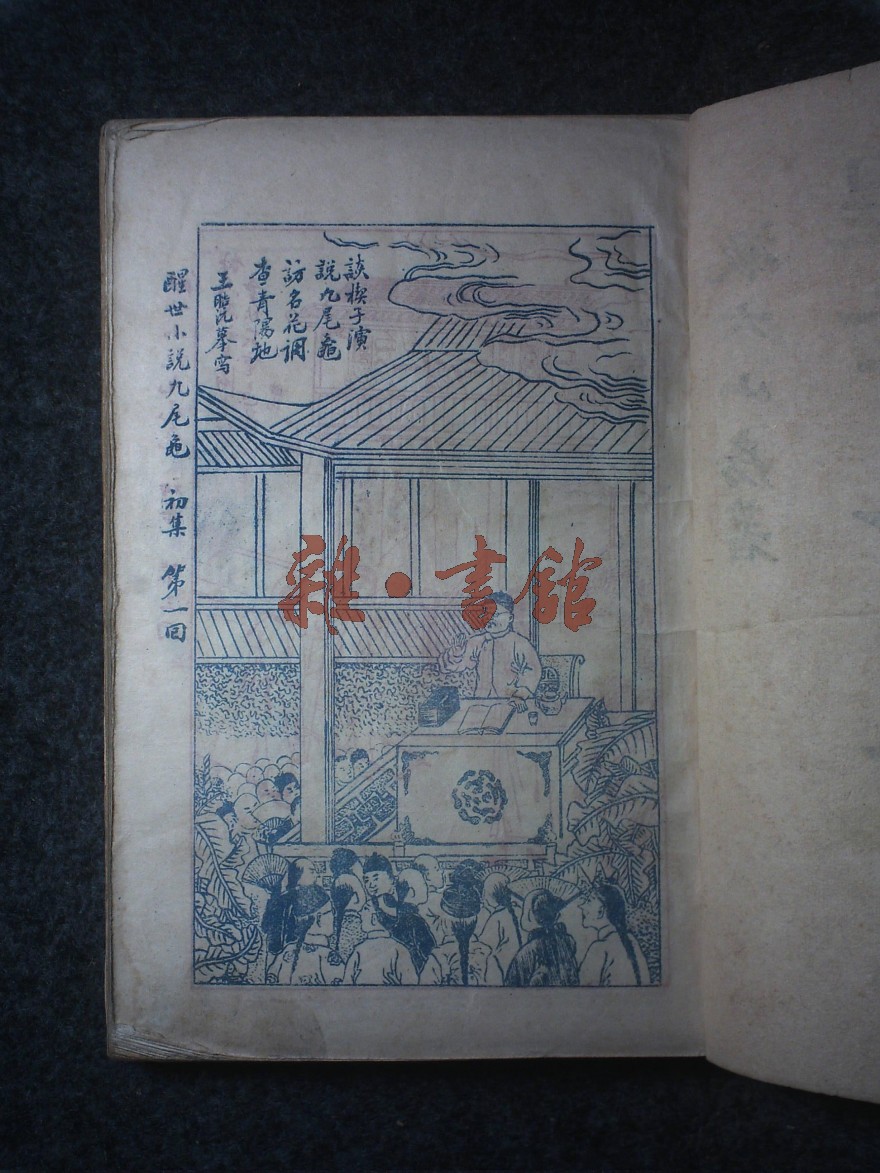 談楔子演
說九尾龜
訪名花調
查青陽地
王
醒世小說九尾龜 初集 第一回
雜·書館